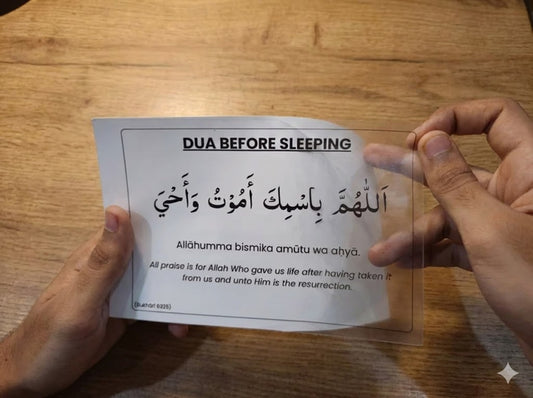 DUA BEFORE SLEEPING
اَللّٰهُمَّ بِاسْمِكَ أَمُوْتُ وَأَحْيَ
Allāhumma bismika amūtu wa aḥyā.
All praise is for Allah Who gave us life after having taken it
from us and unto Him is the resurrection.
(Bukhari 6325)